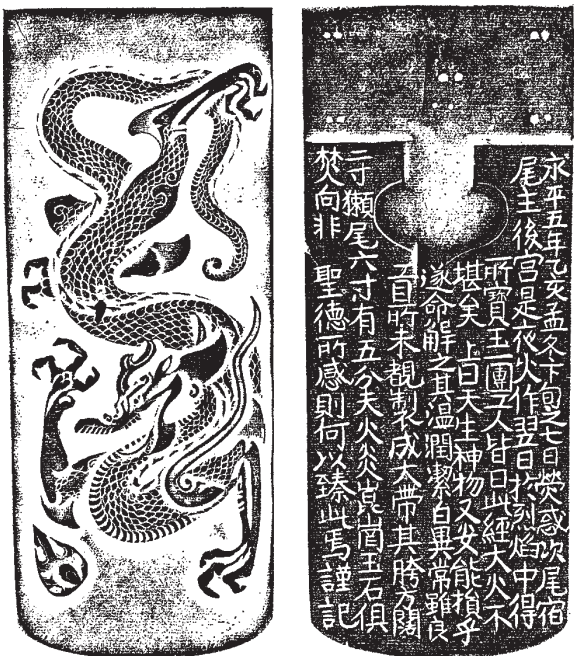 永平五年乙亥孟冬下旬之七日熒惑次尾宿
尾主後宮是夜火作翌日於烈焰中得
所寶玉一團工人皆曰此經大火不
堪矣 上曰天生神物又安能損乎
遂命解之其溫潤潔白異常雖良
工目所未覩製成大帶其胯方闊
二寸獺尾六寸有五分夫火炎崑崗玉石俱
焚向非 聖德所感則何以臻此焉謹記